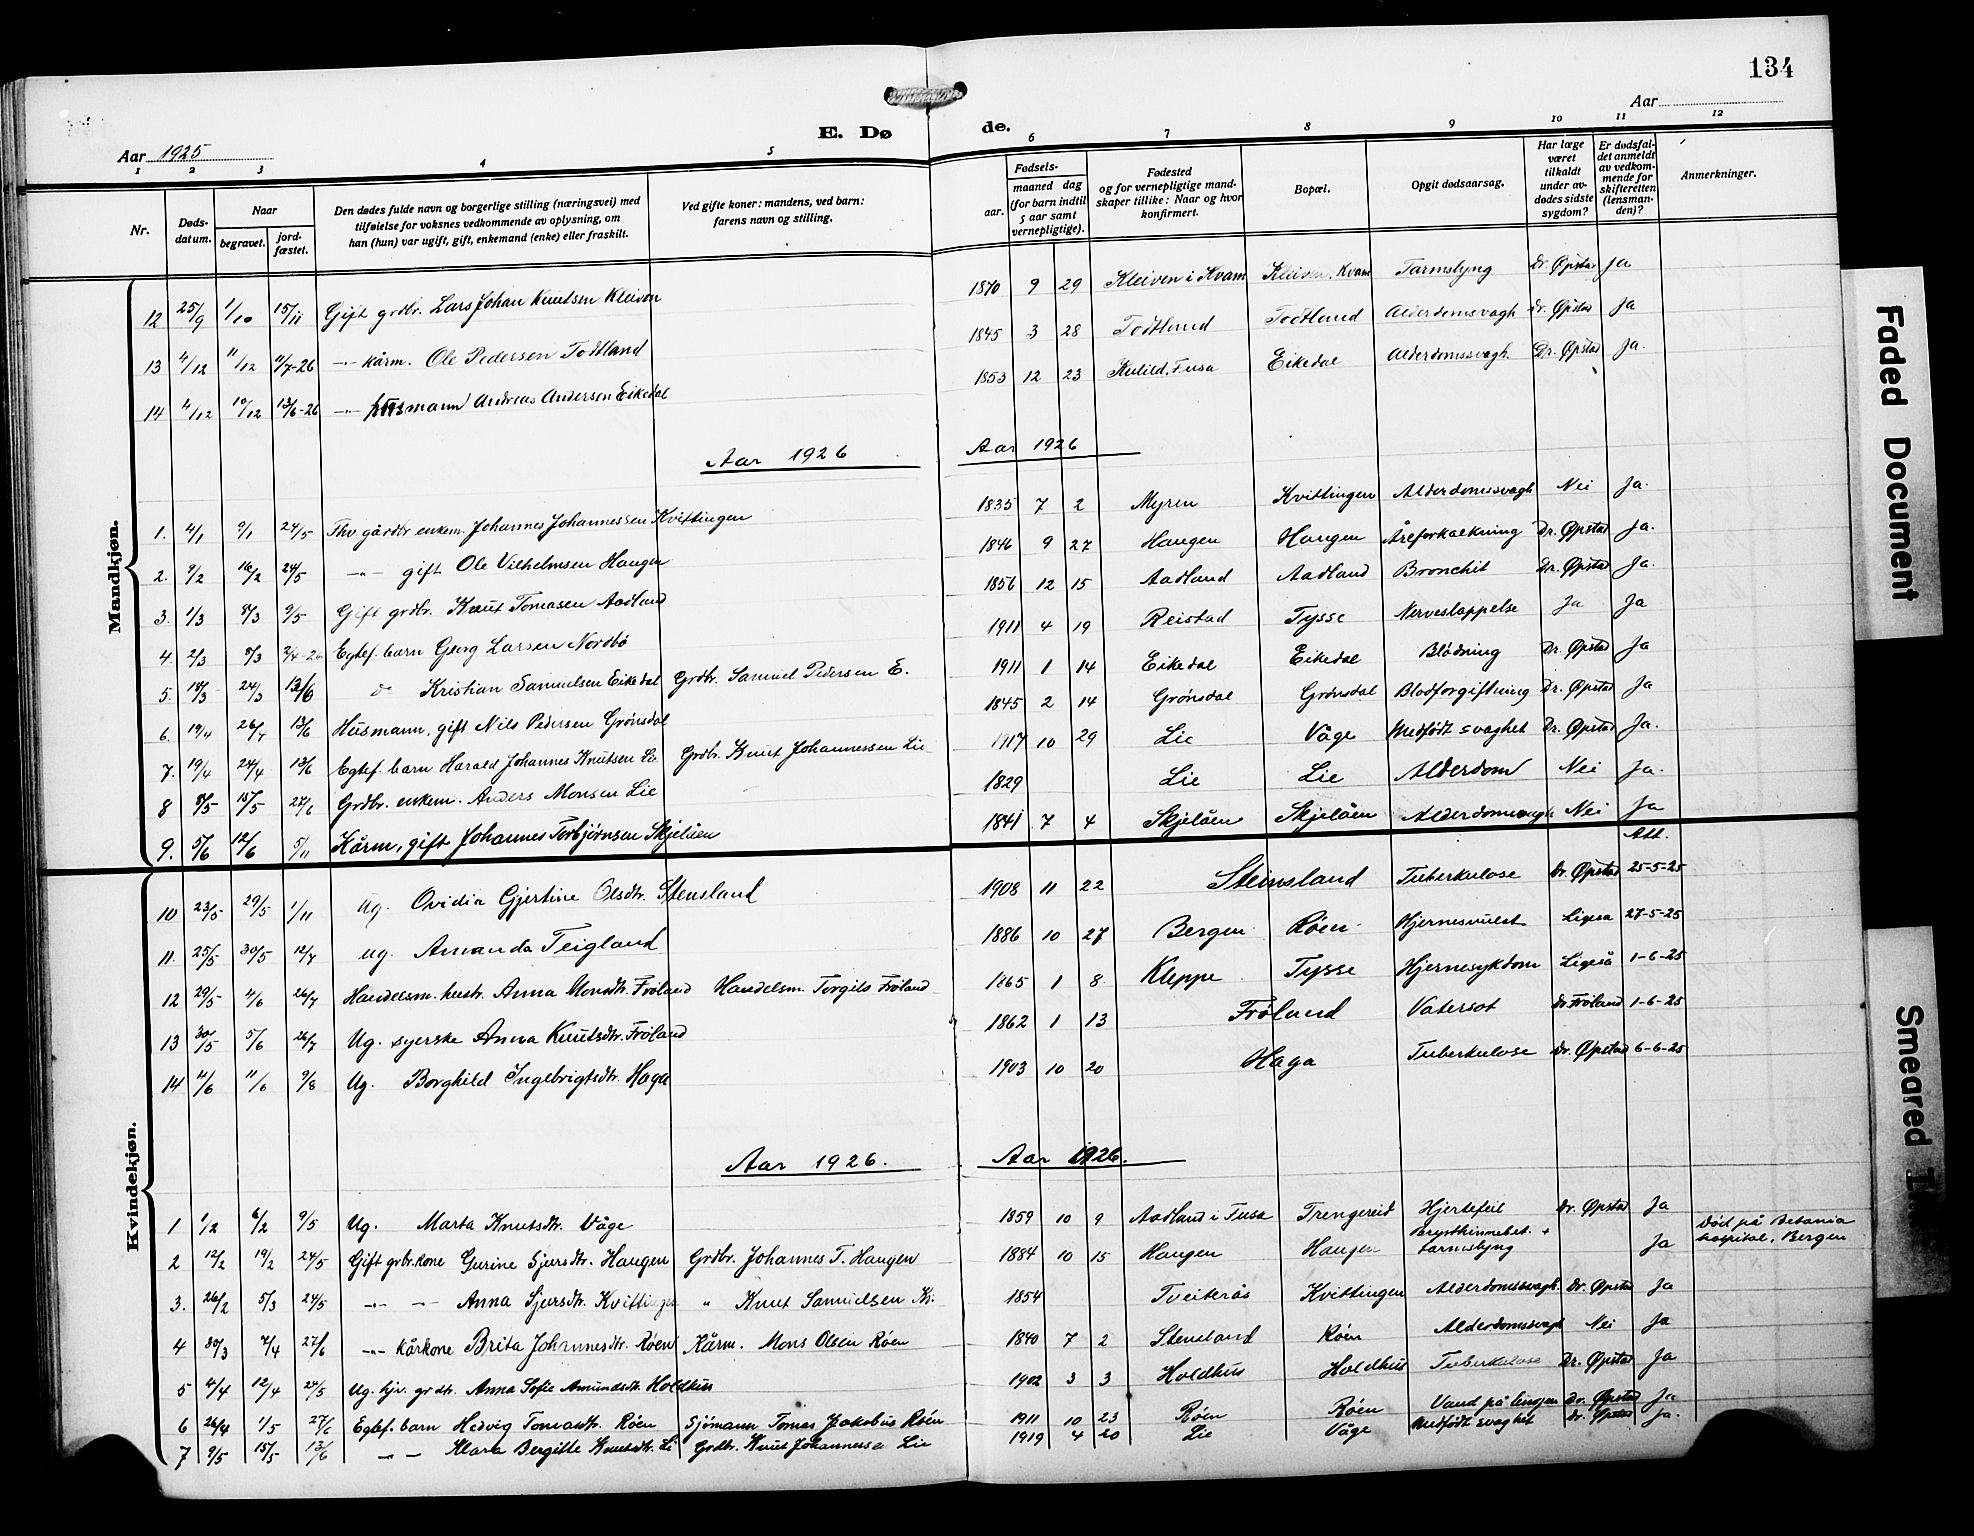 134
E. Dø de.
Aar 1925
Aar
1 2 3 4 5 6 7 8 9 10 11 12
Nr.
Døds-
datum.
Naar
begravet.
jord-
fæstet.
Den dødes fulde navn og borgerlige stilling (næringsvei) med
tilføielse for voksnes vedkommende av oplysning, om
han (hun) var ugift, gift, enkemand (enke) eller fraskilt.
Ved gifte koner: mandens, ved barn:
farens navn og stilling.
Fødsels-
aar.
maaned dag
(for barn indtil
5 aar samt
vernepligtige).
Fødested
og for vernepligtige mand-
skaper tillike: Naar og hvor
konfirmert.
Bopæl.
Opgit dødsaarsag.
Har læge
været
tilkaldt
under av-
dødes sidste
sygdom?
Er dødsfal-
det anmeldt
av vedkom-
mende for
skifteretten
(lensman-
den)?
Anmerkninger.
Mandkjøn.
12 25/9 1/10 15/11 Gift grdbr. Lars Johan Knutsen Kleiven 1870 9 29 Kleiven i Kvam Kleiven, Kvam Tarmslyng Dr. Øpstad Ja
13 4/12 11/12 11/7-26 -"- kårm. Ole Pedersen Todtland 1845 3 28 Todtland Todtland Alderdomsvagh Dr. Øpstad Ja
14 4/12 10/12 13/6-26 -"- husmann Andreas Andersen Eikedal 1853 12 23 Kulild, Fusa Eikedal Alderdomssvagh. Dr. Øpstad Ja.
Aar 1926 Aar 1926
1. 4/1 9/1 24/5 Fhv gårdbr enkem. Johannes Johannessen Kvittingen 1835 7 2 Myren Kvittingen Alderdomssvagh Nei Ja.
2. 9/2 16/2 24/5 -"- gift Ole Vilhelmsen Haugen 1846 9 27 Haugen Haugen Åreforkalkning Dr. Øpstad Ja.
3. 1/3 8/3 9/5 Gift grdbr. Knut Tomasen Aadland 1856 12 15 Aadland Aadland Bronchit Dr. Øpstad Ja.
4. 2/3 8/3 2/4-26 Egtef. barn Georg Larsen Nordbø 1911 4 19 Reistad Tysse Nerveslappelse Ja Ja
5. 18/3 24/3 13/6 do Kristian Samuelsen Eikedal Grdbr. Samuel Pedersen E. 1911 1 14 Eikedal Eikedal Blødning Dr. Øpstad Ja
6. 19/4 26/4 13/6 Husmann, gift Nils Pedersen Grønsdal 1845 2 14 Grønsdal Grønsdal Blodforgiftning Dr. Øpstad Ja
7. 19/4 24/4 13/6 Egtef. barn Harald Johannes Knutsen Lie Grdbr. Knut Johannessen Lie 1917 10 29 Lie Våge Medfødt svaghet Dr. Øpstad Ja.
8 8/5 15/5 27/6 Grdbr. enkem. Anders Monsen Lie 1829 Lie Lie Alderdom Nei Ja.
9. 5/6 12/6 5/11 Kårm, gift Johannes Torbjørnsen Skjelåen 1841 7 4 Skjelåen Skjelåen Alderdomsvagh Nei Ja
Kvindekjøn.
Att.
10 23/5 29/5 1/11 Ug. Ovidia Gjertine Olsdtr. Stensland 1908 11 22 Steinsland Tuberkulose Dr. Øpstad 25-5-25
11. 25/5 30/5 12/7 ug. Amanda Teigland 1886 10 27 Bergen Røen Hjernesvulst Ligesa 27-5-25
12 29/5 4/6 26/7 Handelsm. hustr. Anna Monsdtr. Frøland Handelsm. Torgils Frøland 1865 1 8 Kleppe Tysse Hjernesykdom Ligeså 1-6-25
13 30/5 5/6 26/7 Ug. syerske Anna Knutsdtr. Frøland 1862 1 13 Frøland Vatersot Dr Frøland 1-6-25
14 4/6 11/6 9/8 Ug. Borghild Ingebrigtsdtr. Haga 1903 10 20 Haga Tuberkulose Dr. Øpstad 6-6-25
Aar 1926. Aar 1926.
1 1/2 6/2 9/5 Ug. Marta Knutsdtr. Våge 1859 10 9 Aadland i Fusa Trengereid Hjertefeil Dr. Øpstad Ja
2 12/2 19/2 24/5 Gift grbr.kone Gurine Sjursdtr. Haugen Grdbr. Johannes T. Haugen 1884 10 15 Haugen Haugen Brysthinnebet. + tarmslyng Ja Død på Betania hospital, Bergen
3. 26/2 5/3 24/5 -"- -"- Anna Sjursdtr. Kvittingen " Knut Samuelsen Kv. 1854 Tveiterås Kvittingen Alderdomssvagh. Dr. Øpstad Ja
4 30/3 7/4 27/6 -"- kårkone Brita Johannesdtr. Røen Kårm. Mons Olsen Røen 1840 7 2 Stensland Røen Alderdomssvagh Nei Ja
5 4/4 12/4 24/5 Ug. hjv. grdtr. Anna Sofie Amundsdtr. Holdhus 1902 3 3 Holdhus Holdhus Tuberkulose Dr. Øpstad Ja
6 26/4 1/5 27/6 Egtef. barn Hedvig Tomasdtr. Røen Sjømann Tomas Jakobus Røen 1911 10 23 Røen Røen Vand på lungen Dr. Øpstad Ja
7 9/5 15/5 13/6 -"- Klara Bergitte Knutsdtr. Li Grdbr. Knut Johannesen Lie 1919 4 20 Lie Våge Medfødt svaghet Dr. Øpstad Ja.
Faded Document
Smeared